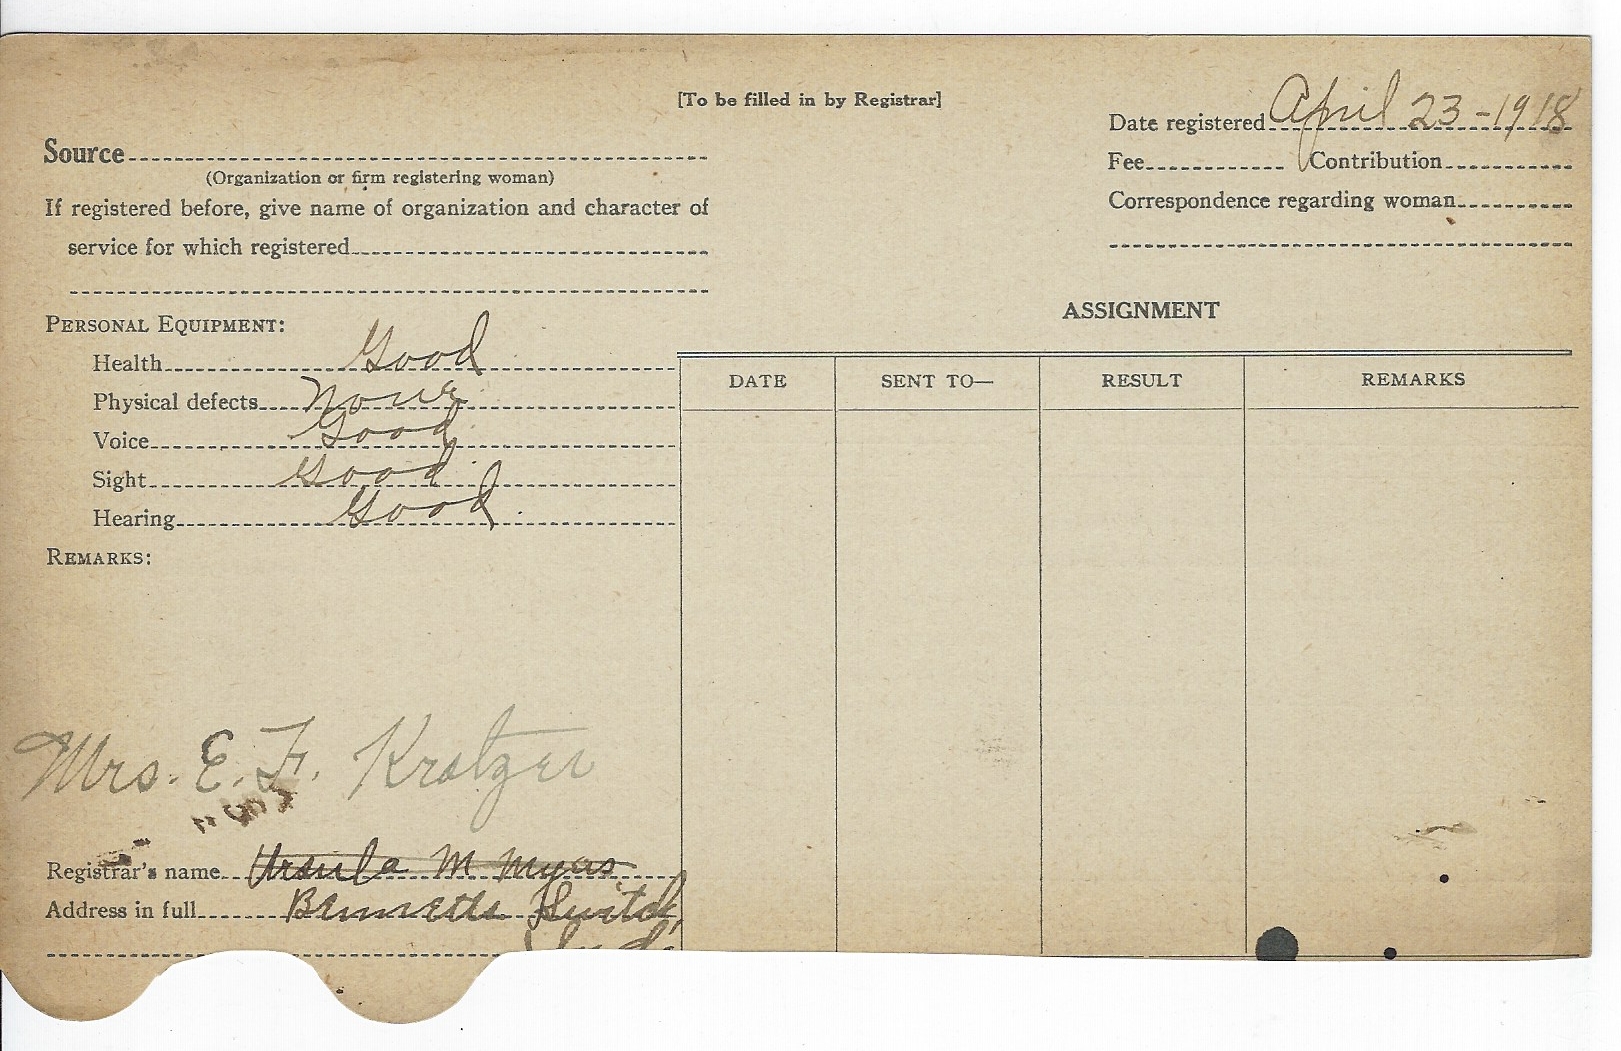 [To be filled in by Registrar]
Date registered April 23-1918
Source
(Organization or firm registering woman)
Fee Contribution
If registered before, give name of organization and character of
service for which registered
Correspondence regarding woman
PERSONAL EQUIPMENT:
Health Good
Physical defects None
Voice Good
Sight Good
Hearing Good
REMARKS:
ASSIGNMENT
DATE SENT TO— RESULT REMARKS
Mrs. E. F. Kratzer
Registrar's name Ursula M Myers
Address in full Bennetts Switch,
Ind.